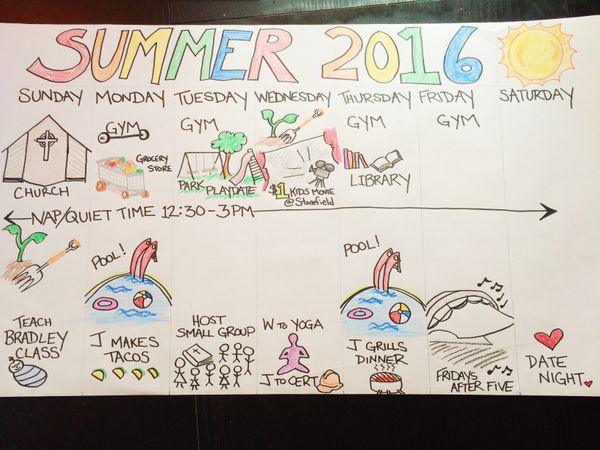 SUMMER 2016
SUNDAY MONDAY TUESDAY WEDNESDAY THURSDAY FRIDAY SATURDAY
CHURCH
GYM
GROCERY
STORE
GYM
PARK PLAYDATE
$1 KIDS MOVIE
@ Stonefield
GYM
LIBRARY
GYM
NAP/QUIET TIME 12:30-3PM
TEACH
BRADLEY
CLASS
POOL!
J MAKES
TACOS
HOST
SMALL GROUP
W to YOGA
J TO CERT
POOL!
J GRILLS
DINNER
FRIDAYS
AFTER FIVE
DATE
NIGHT